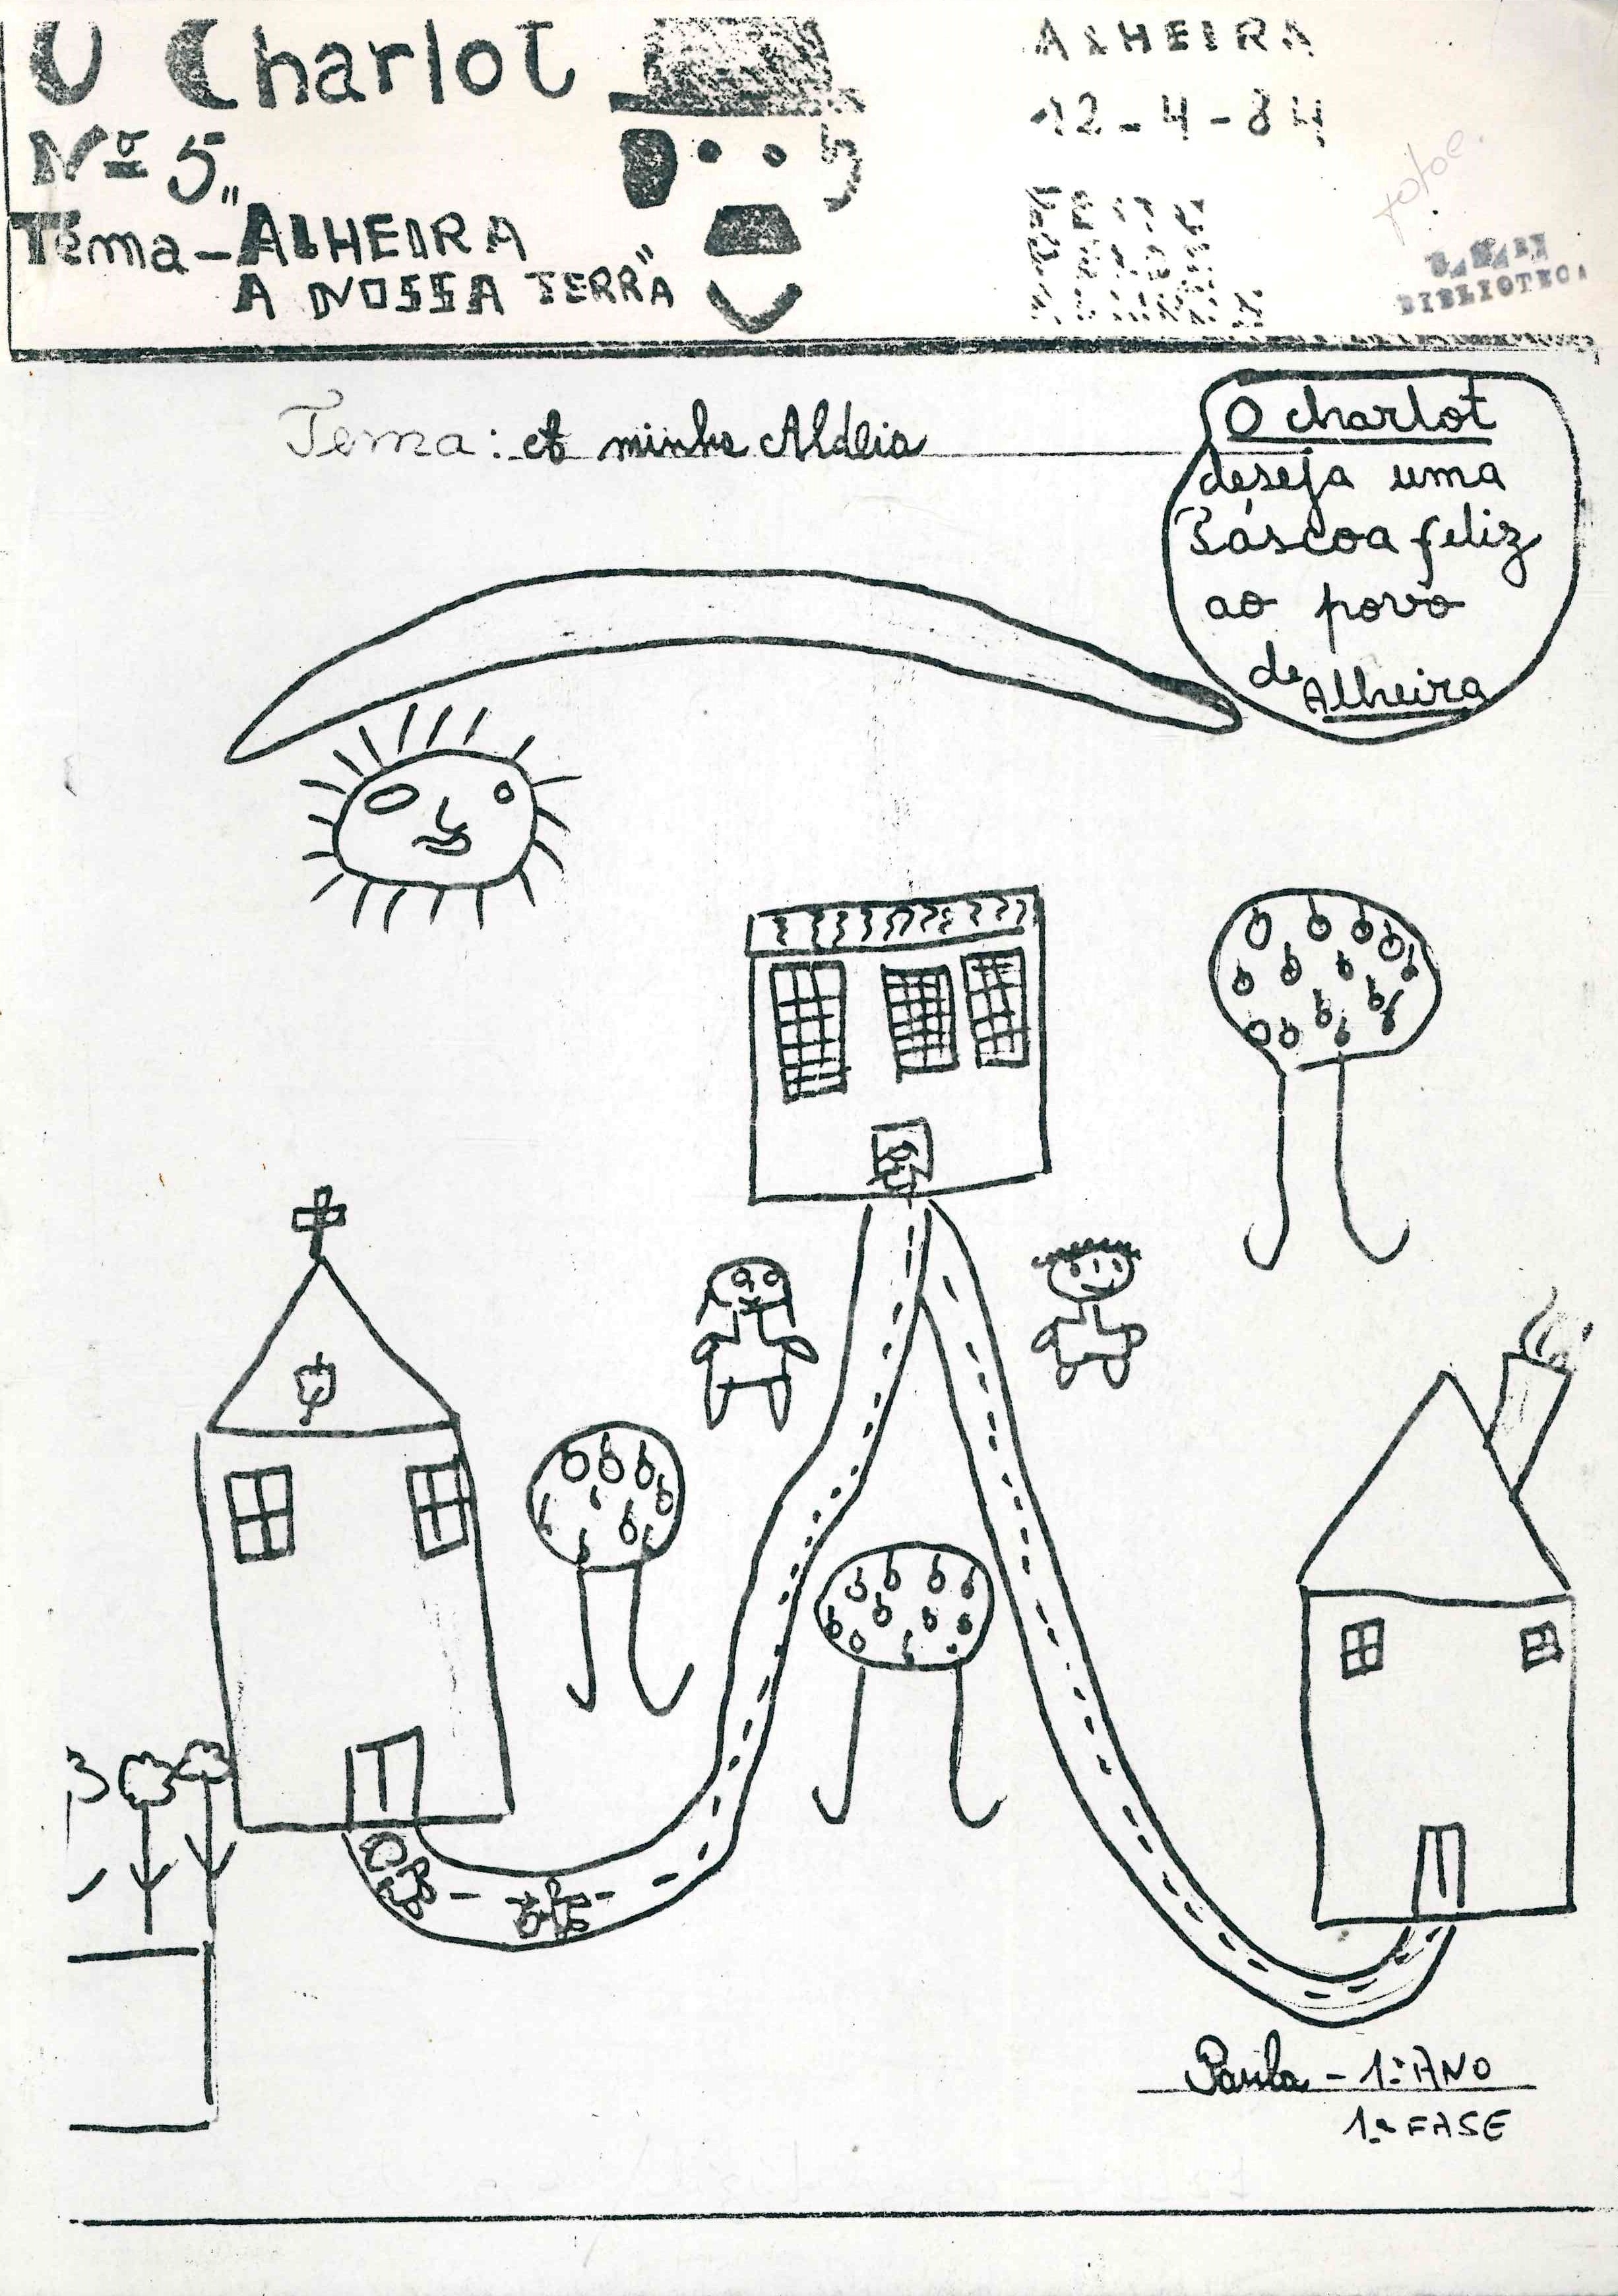 O Charlot
Nº 5
Tema - "ALHEIRA
A NOSSA TERRA"
ALHEIRA
12-4-84
FEITO
PELOS
ALUNOS
fotoc.
BIBLIOTECA
Tema: A minha Aldeia
O charlot
deseja uma
Páscoa feliz
ao povo
de Alheira
Paula - 1º ANO
1ª FASE